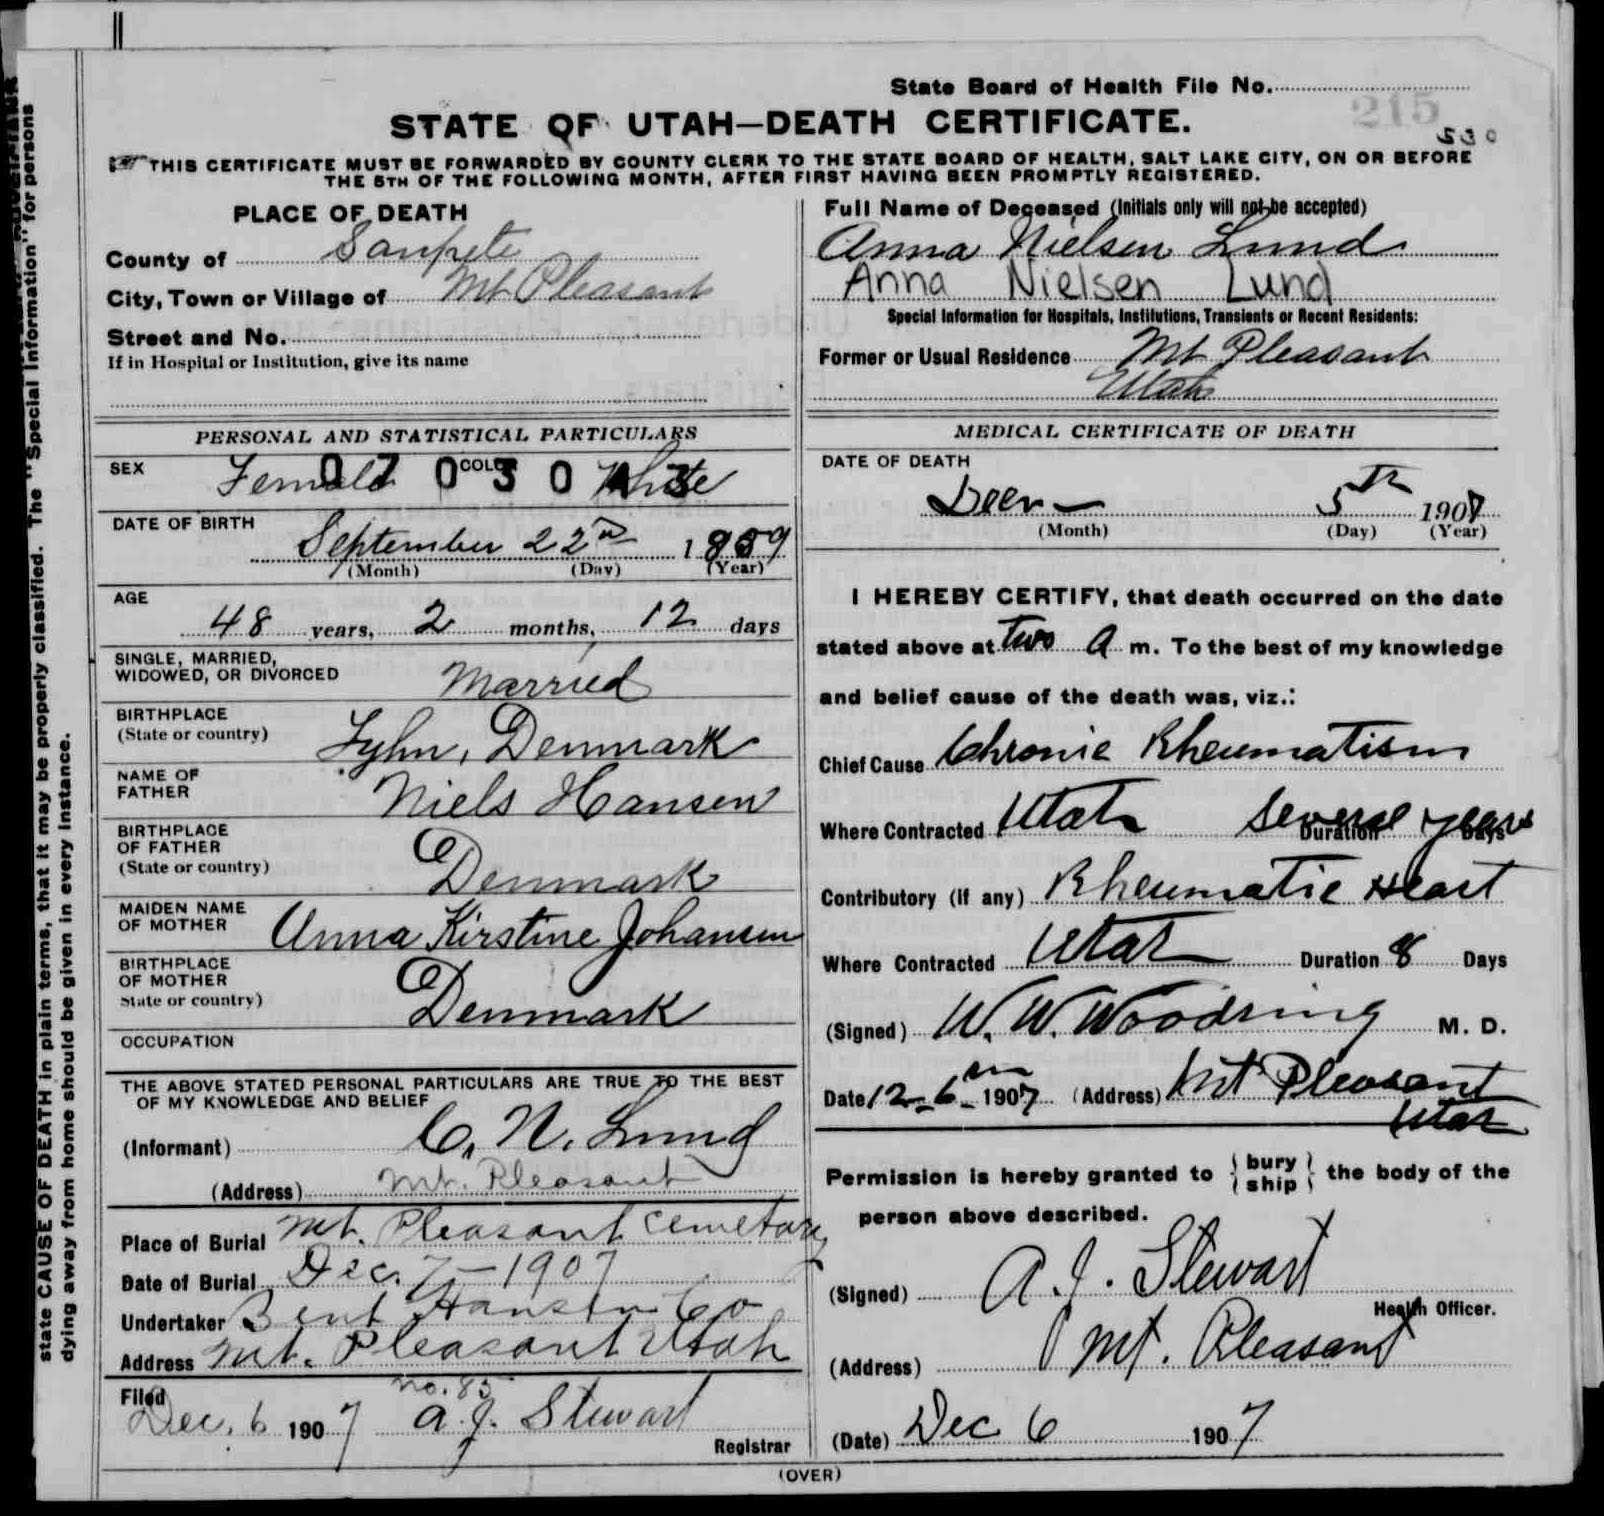 State Board of Health File No.
215
530
STATE OF UTAH—DEATH CERTIFICATE.
THIS CERTIFICATE MUST BE FORWARDED BY COUNTY CLERK TO THE STATE BOARD OF HEALTH, SALT LAKE CITY, ON OR BEFORE
THE 5TH OF THE FOLLOWING MONTH, AFTER FIRST HAVING BEEN PROMPTLY REGISTERED.
PLACE OF DEATH
County of Sanpete
City, Town or Village of Mt Pleasant
Street and No.
If in Hospital or Institution, give its name
Full Name of Deceased (Initials only will not be accepted)
Anna Nielsen Lund
Anna Nielsen Lund
Special Information for Hospitals, Institutions, Transients or Recent Residents:
Former or Usual Residence Mt Pleasant
Utah
PERSONAL AND STATISTICAL PARTICULARS
SEX Female COLOR White
DATE OF BIRTH
September 22nd 1859
(Month) (Day) (Year)
AGE
48 years, 2 months, 12 days
SINGLE, MARRIED,
WIDOWED, OR DIVORCED Married
BIRTHPLACE
(State or country) Fyhn, Denmark
NAME OF
FATHER Niels Hansen
BIRTHPLACE
OF FATHER
(State or country) Denmark
MAIDEN NAME
OF MOTHER Anna Kirstine Johansen
BIRTHPLACE
OF MOTHER
State or country) Denmark
OCCUPATION
THE ABOVE STATED PERSONAL PARTICULARS ARE TRUE TO THE BEST
OF MY KNOWLEDGE AND BELIEF
(Informant) C. N. Lund
(Address) Mt. Pleasant
Place of Burial Mt. Pleasant Cemetary
Date of Burial Dec. 7 - 1907
Undertaker Bent Hansen Co
Address Mt. Pleasant Utah
Filed no. 85
Dec. 6 1907 A. J. Stewart
Registrar
MEDICAL CERTIFICATE OF DEATH
DATE OF DEATH
Decr 5th 1907
(Month) (Day) (Year)
I HEREBY CERTIFY, that death occurred on the date
stated above at two a m. To the best of my knowledge
and belief cause of the death was, viz.:
Chief Cause Chronic Rheumatism
Where Contracted Utah Duration several years Days
Contributory (if any) Rheumatic Heart
Where Contracted Utah Duration 8 Days
(Signed) W. W. Woodring M. D.
Date 12-6th 1907 (Address) Mt Pleasant
Utah
Permission is hereby granted to (bury ship) the body of the
person above described.
(Signed) A. J. Stewart
Health Officer.
(Address) Mt. Pleasant
(Date) Dec 6 1907
(OVER)
state CAUSE OF DEATH in plain terms, that it may be properly classified. The "Special Information" for persons
dying away from home should be given in every instance.